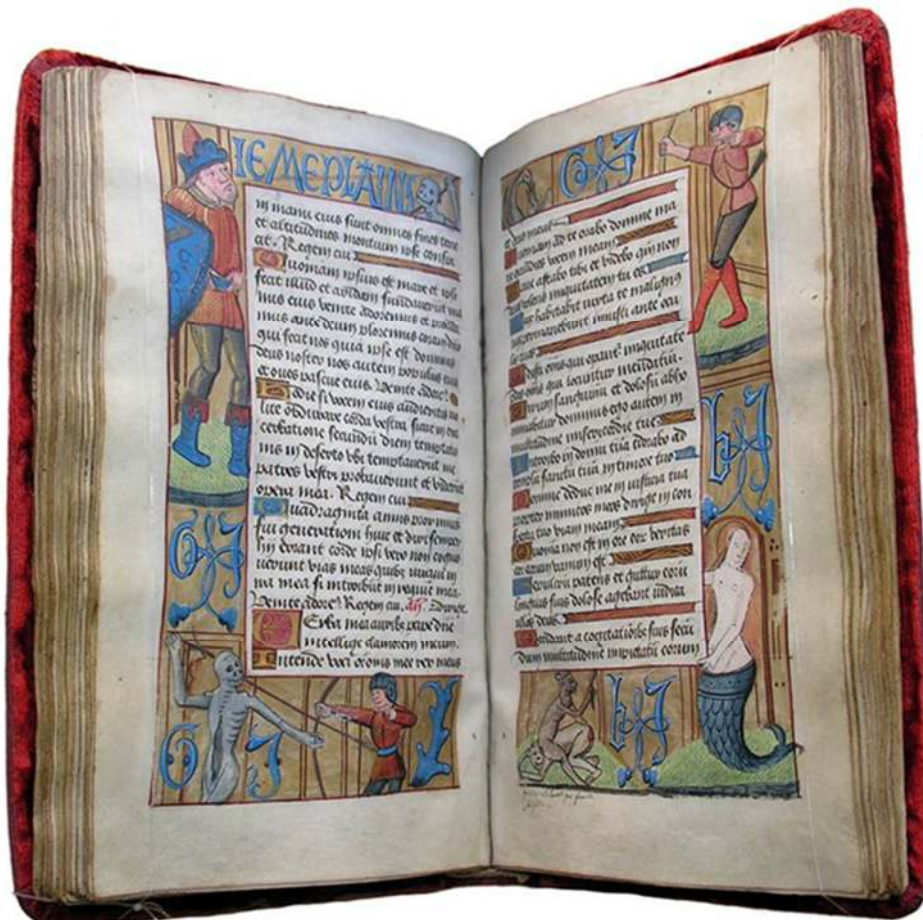 IEMEPLAINS
in manu eius sunt omnes fines terre
et altitudines montium ipse conspi
cit. Regem cui
Quoniam ipsius est mare et ipse
fecit illud et aridam fundaverunt ma
nus eius venite adoremus et procida
mus ante deum ploremus coram dno
qui fecit nos quia ipse est dominus
deus noster nos autem populus eius
et oves pascue eius. Venite adore
Hodie si vocem eius audieritis no
lite obdurare corda vestra sicut in exa
cerbatione secundū diem temptatio
nis in deserto ubi temptaverunt me
patres vestri probaverunt et viderunt
opera mea. Regem cui
Quadraginta annis proximus
fui generationi huic et dixi semper
hii errant corde ipsi vero non cogno
verunt vias meas quibus iuravi in
ira mea si introibunt in requie mea
Venite adore Regem cui. añ. Dirige
Verba mea auribus percipe dne
intellige clamorem meum.
Intende voci oronis mee rex meus
G J
G J
G J
et deus meus
Quoniam ad te orabo domine ma
ne exaudies vocem meam
Mane astabo tibi et videbo qm non
deus volens iniquitatem tu es
Neque habitabit iuxta te malignus
neque permanebunt iniusti ante ocu
los tuos
Odisti omnes qui operant iniquitate
perdes omnes qui locuntur mendatiū
Virum sanguinum et dolosū abho
minabitur dominus ego autem in
multitudine misericordie tue
Introibo in domū tuā adorabo ad
templū sanctū tuū in timore tuo
Domine deduc me in iusticia tua
propter inimicos meos dirige in con
spectu tuo viam meam
Quoniā non est in ore eorū veritas
cor eorum vanum est
Sepulcrū patens est guttur eorū
linguis suis dolose agebant iudica
illos deus
Decidant a cogitationibs suis secū
dum multitudinē impietatū eorum
b J
b J